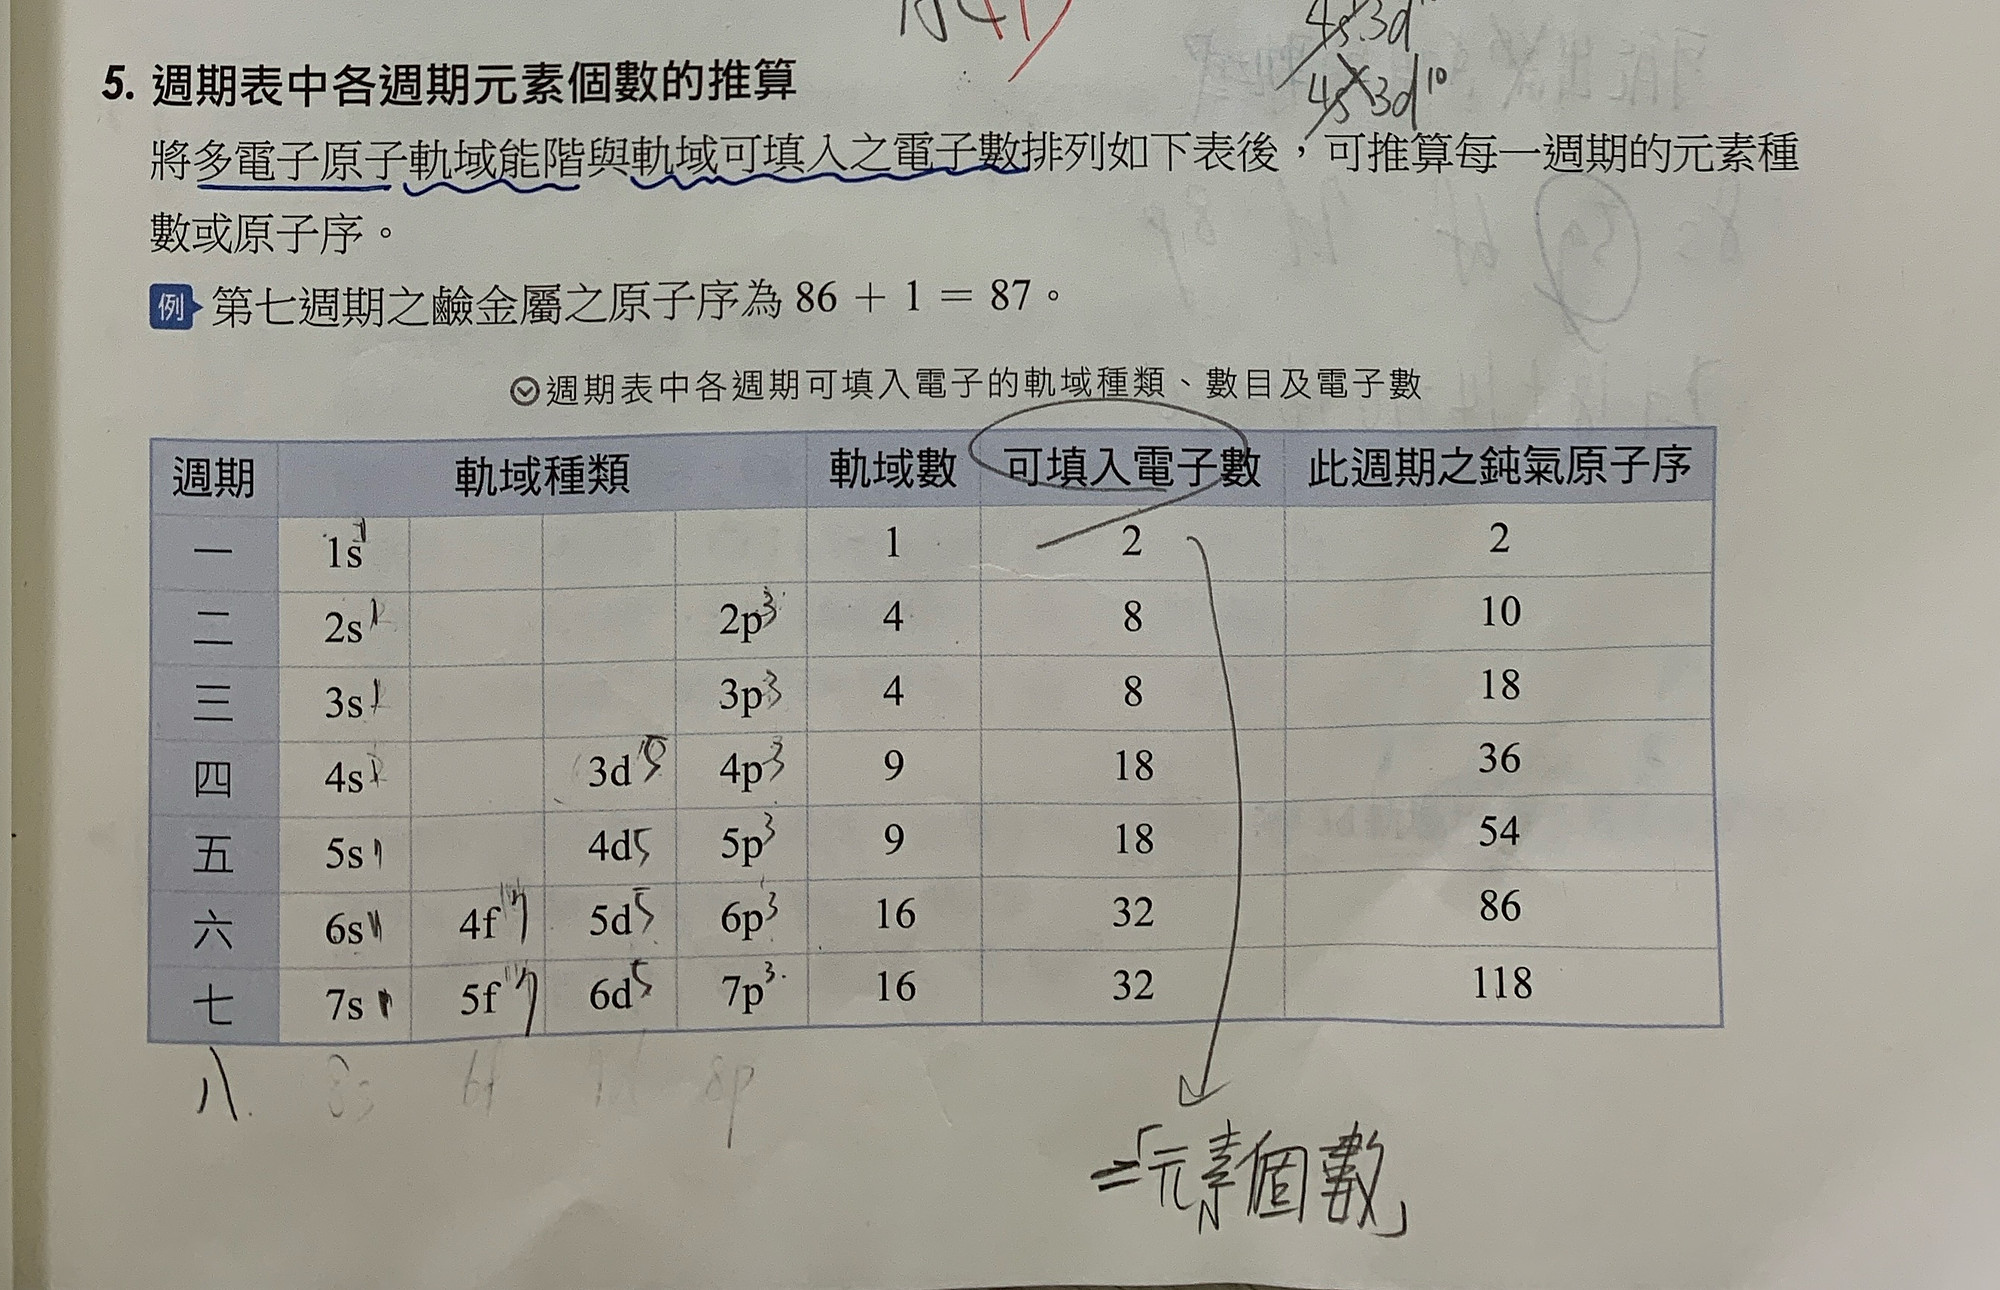 4s 3d
4s 3d¹⁰
5. 週期表中各週期元素個數的推算
將多電子原子軌域能階與軌域可填入之電子數排列如下表後，可推算每一週期的元素種
數或原子序。
例 第七週期之鹼金屬之原子序為 86 + 1 = 87。
週期表中各週期可填入電子的軌域種類、數目及電子數
週期 軌域種類 軌域數 可填入電子數 此週期之鈍氣原子序
一 1s 1 2 2
二 2s 2p³ 4 8 10
三 3s 3p³ 4 8 18
四 4s 3d 4p³ 9 18 36
五 5s¹ 4d⁵ 5p³ 9 18 54
六 6s 4f⁷ 5d⁵ 6p³ 16 32 86
七 7s 5f⁷ 6d⁵ 7p³ 16 32 118
八 8s 6f 7d 8p
=「元素個數」